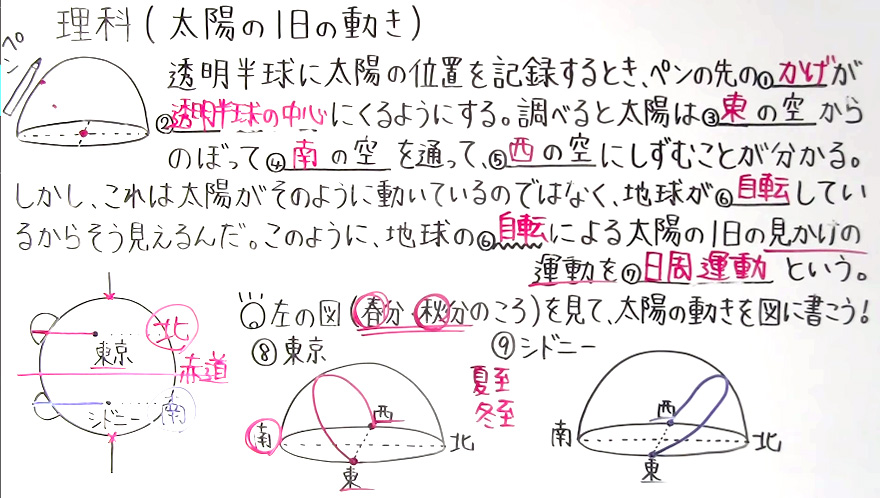 理科(太陽の1日の動き)
透明半球に太陽の位置を記録するとき、ペンの先の①かげが
②透明半球の中心にくるようにする。調べると太陽は③東の空から
のぼって④南の空を通って、⑤西の空にしずむことが分かる。
しかし、これは太陽がそのように動いているのではなく、地球が⑥自転してい
るからそう見えるんだ。このように、地球の⑥自転による太陽の1日の見かけの
運動を⑦日周運動という。
左の図(春分・秋分のころ)を見て、太陽の動きを図に書こう!
北
東京
赤道
シドニー
南
⑧東京
南
西
北
東
夏至
冬至
⑨シドニー
南
西
北
東